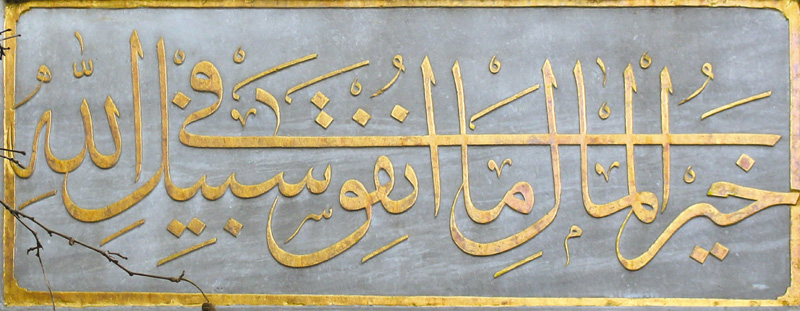 خير المال ما انفق في سبيل الله